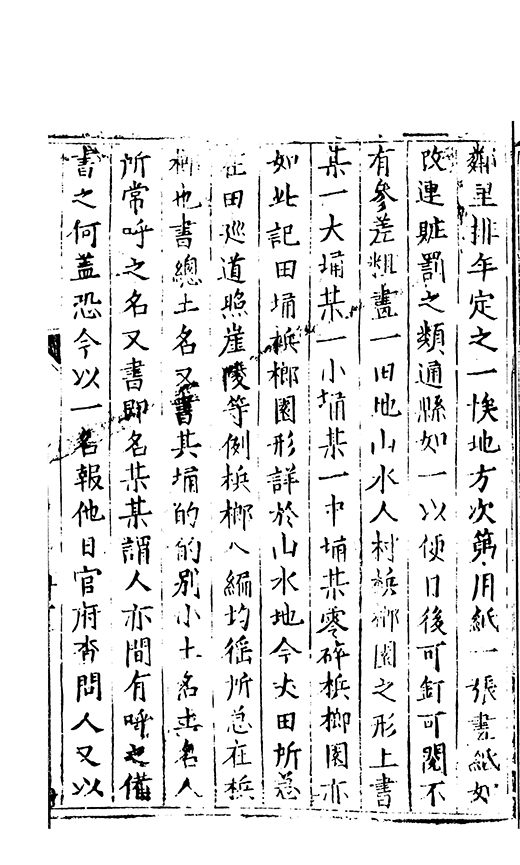 鄰里排年定之一俟地方次第用紙一張畫紙如
改連賍罰之類通縣如一以便日後可釘可閱不
有參差粗畫一旧地山水人村梹榔園之形上書
某一大埇某一小埇某一中埇某零碎梹榔園亦
如此記田埇梹榔園形詳於山水地今丈田所急
在田巡道照崖陵等例梹榔八編均徭所急在梹
榔也書總土名又書其埇的的別小土名夫名人
所常呼之名又書即名某某謂人亦間有呼之備
書之何蓋恐今以一名報他日官府查問人又以